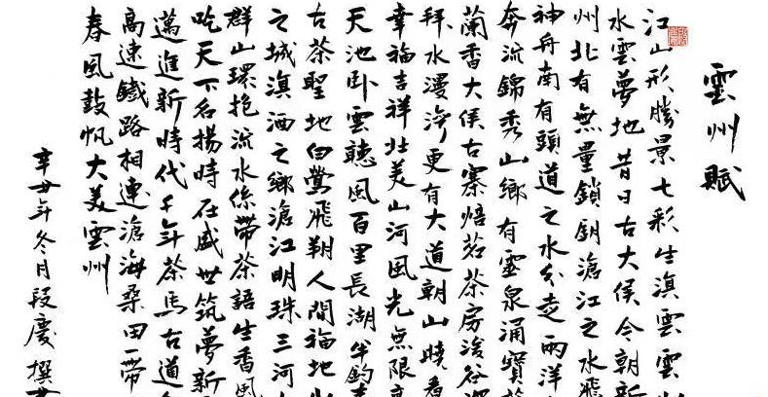 雲州賦
江山形勝景七彩生滇雲雲
水雲夢地昔日古大侯今朝新
州北有無量鎖鑰滄江之水飛
神舟南有頭道之水分走兩洋
奔流錦秀山鄉有靈泉涌寶
蘭香大侯古寨焙茗茶房浚谷
拜水漫灣更有大道朝山曉看
幸福吉祥壯美山河風光無限
天池卧雲聽風百里長湖半鈎
古茶聖地白鶯飛翔人間福地
之城滇酒之鄉滄江明珠三河
群山環抱流水絲帶茶語生香風
吃天下名揚時在盛世筑夢新
邁進新時代千年茶馬古道
高速鐵路相連滄海桑田一帶
春風鼓帆大美雲州
辛丑年冬月段慶撰